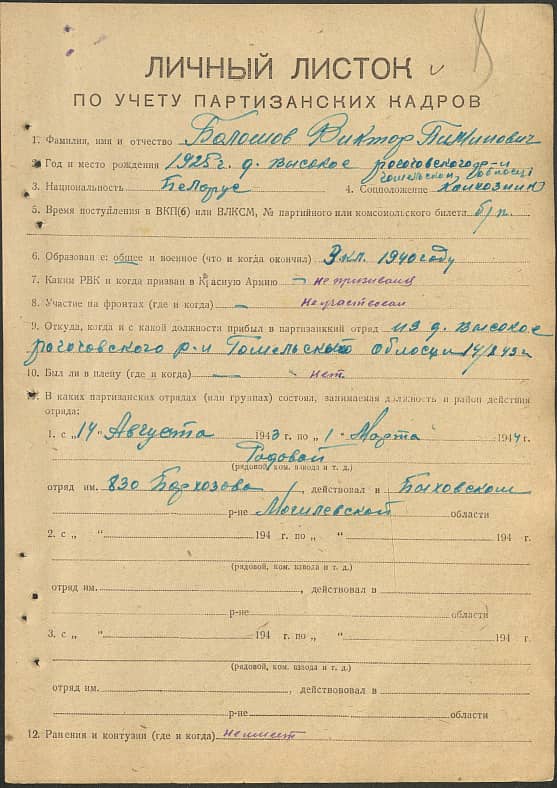 ЛИЧНЫЙ ЛИСТОК
ПО УЧЕТУ ПАРТИЗАНСКИХ КАДРОВ
1. Фамилия, имя и отчество Виктор
2. Год и место рождения 1925 г. д. высокое рогочовского р-н
гомельской области
3. Национальность Беларус 4. Соцположение колхозник
5. Время поступления в ВКП(б) или ВЛКСМ, № партийного или комсомольского билета б/п.
6. Образован е: общее и военное (что и когда окончил) 3 кл. 1940 году
7. Каким РВК и когда призван в Красную Армию – не призивалц
8. Участие на фронтах (где и когда) – не участвовал
9. Откуда, когда и с какой должности прибыл в партизанккий отряд из д. высокое
рогочовского р-н Гомельской области 14/8 43 г.
10. Был ли в плену (где и когда) – нет.
11. В каких партизанских отрядах (или группах) состоял, занимаемая должность и район действия
отряда:
1. с „14" Августа 1943 г. по „1" Марта 1944 г.
Радовой
(рядовой, ком. взвода и т. д.)
отряд им. 830 , действовал в Быховском
р-не Могилевской области
2. с „ " 194 г. по „ " 194 г.
(рядовой, ком. взвода и т. д.)
отряд им. , действовал в
р-не области
3. с „ " 194 г. по „ " 194 г.
(рядовой, ком. взвода и т. д.)
отряд им. , действововал в
р-не области
12. Ранения и контузии (где и когда) неимеет